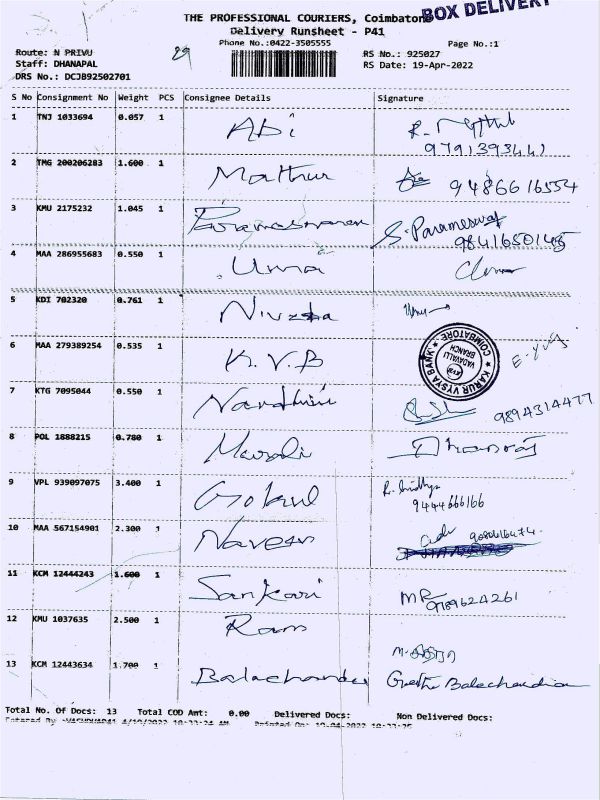 BOX DELIVERY
THE PROFESSIONAL COURIERS, Coimbatore
Delivery Runsheet - P41
Phone No.:0422-3505555
Page No.:1
Route: N PRIVU
29
RS No.: 925027
Staff: DHANAPAL
RS Date: 19-Apr-2022
DRS No.: DCJB92502701
S No Consignment No Weight PCS Consignee Details Signature
1 TNJ 1033694 0.057 1 Abi
9791393441
2 TMG 200206283 1.600 1 Mathur 9486616554
3 KMU 2175232 1.045 1 Parameswaran S. Parameswar
9841650145
4 MAA 286955683 0.550 1 Uma Uma
5 KDI 702320 0.761 1 Nivetha
6 MAA 279389254 0.535 1 K.V.B
KARUR VYSYA BANK
VADAVALLI
BRANCH
COIMBATORE
7 KTG 7095044 0.550 1 Nandhini 9894314477
8 POL 1888215 0.780 1 Murali Dhanraj
9 VPL 939097075 3.400 1 Gokul
9444666166
10 MAA 567154901 2.300 1 Naveen
11 KCM 12444243 1.600 1 Sankari MR
9789624261
12 KMU 1037635 2.500 1 Ram
13 KCM 12443634 1.700 1 Balachander Geetha Balachandran
Total No. Of Docs: 13 Total COD Amt: 0.00 Delivered Docs: Non Delivered Docs:
4/19/2022 10:33:24 AM Printed On: 19-04-2022 10:33:25